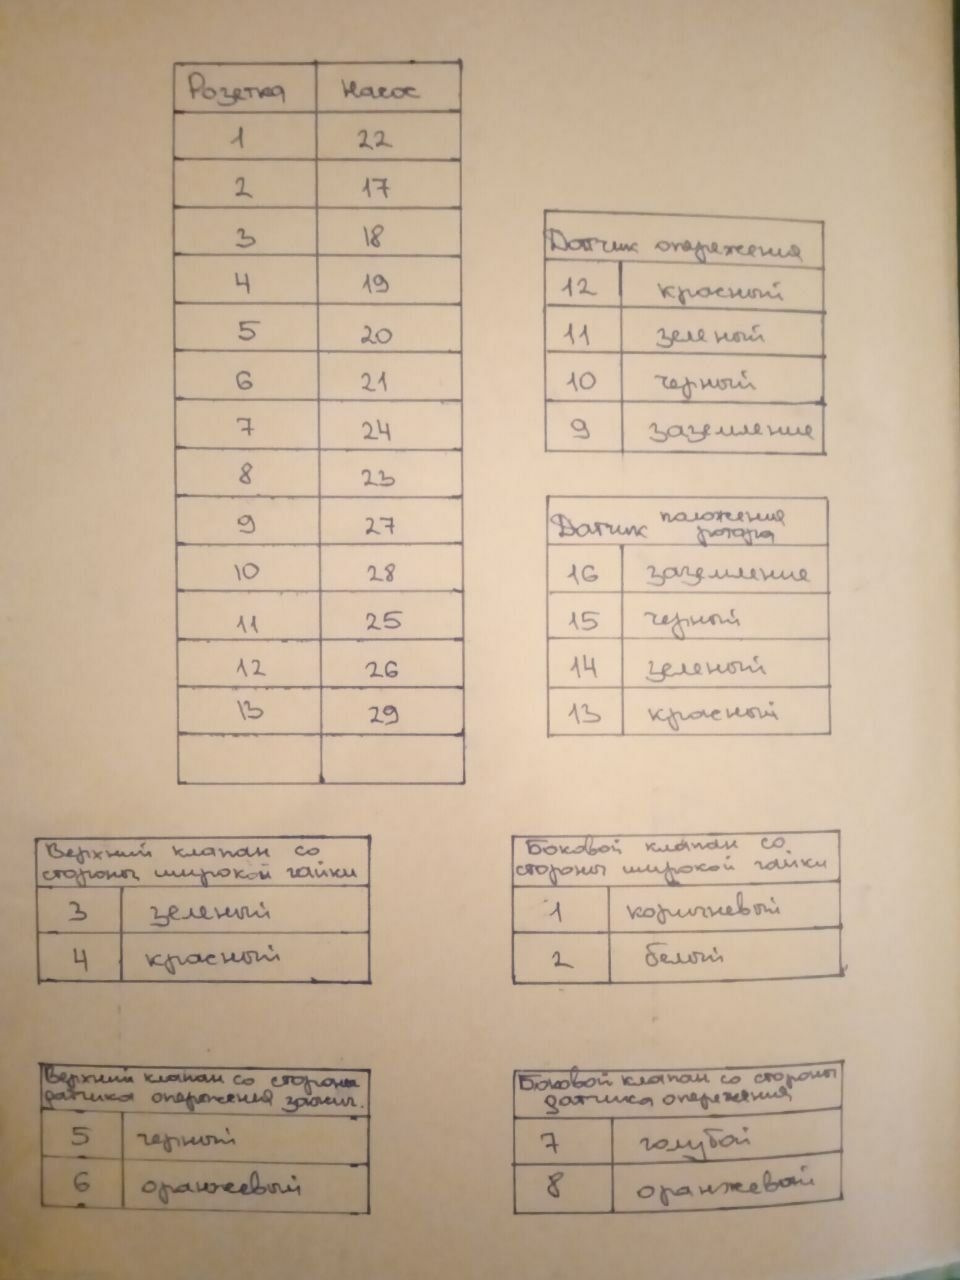 Розетка Насос
1 22
2 17
3 18
4 19
5 20
6 21
7 24
8 23
9 27
10 28
11 25
12 26
13 29
Датчик опережения
12 красный
11 зеленый
10 черный
9 заземление
Датчик положения
ротора
16 заземление
15 черный
14 зеленый
13 красный
Верхний клапан со
стороны широкой гайки
3 зеленый
4 красный
Боковой клапан со
стороны широкой гайки
1 коричневый
2 белый
Верхний клапан со стороны
датчика опережения зажиг.
5 черный
6 оранжевый
Боковой клапан со стороны
датчика опережения
7 голубой
8 оранжевый